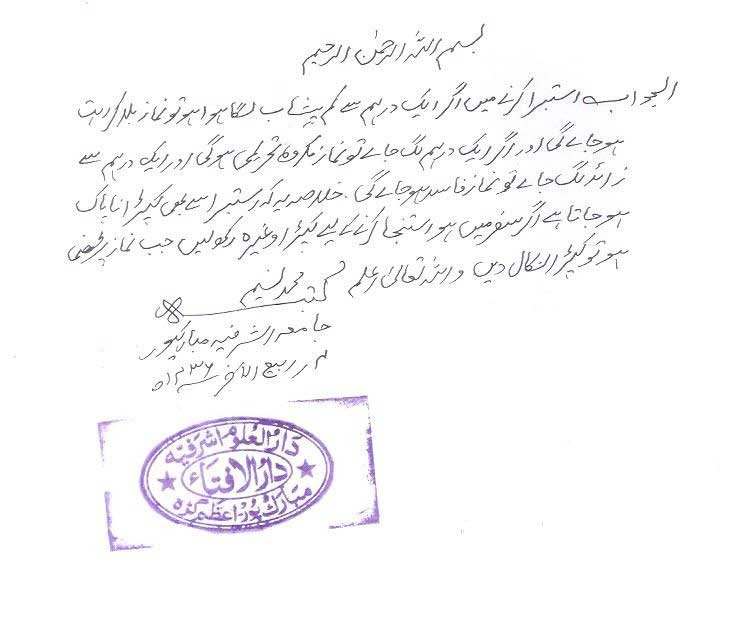 بسم اللہ الرحمٰن الرحیم
الجواب استبرا کرنے میں اگر ایک درہم سے کم پیشاب لگا ہوا ہو تو نماز بلا کراہت
ہو جائے گی اور اگر ایک درہم لگ جائے تو نماز مکروہ تحریمی ہو گی اور ایک درہم سے
زائد لگ جائے تو نماز فاسد ہو جائے گی۔ خلاصہ یہ کہ استبرا سے بھی کپڑا ناپاک
ہو جاتا ہے اگر سفر میں ہو استنجا کرنے کے لیے کپڑا وغیرہ رکھ لیں جب نماز پڑھنا
ہو تو کپڑا نکال دیں واللہ تعالیٰ اعلم
کتبہ محمد نسیم
جامعہ اشرفیہ مبارکپور
۲ ربیع الآخر ۱۴۳۶ھ
دار العلوم اشرفیہ
دار الافتاء
مبارک پور اعظم گڑھ